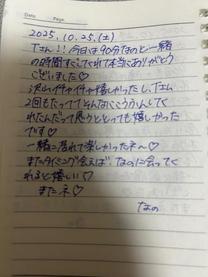 Date
Page
2025.10.25.(土)
Tさん!!今日は90分なのと一緒
の時間すごしてくれて本当にありがとう
ございました♡
沢山イチャイチャ嬉しかったし、Tさん
2回もたってて
くれたんだって思うととっても嬉しかった
です♡
一緒に
楽しかったネ〜♡
またタイミング会えば、なのに会ってく
れると嬉しい♡
またネ♡
なの